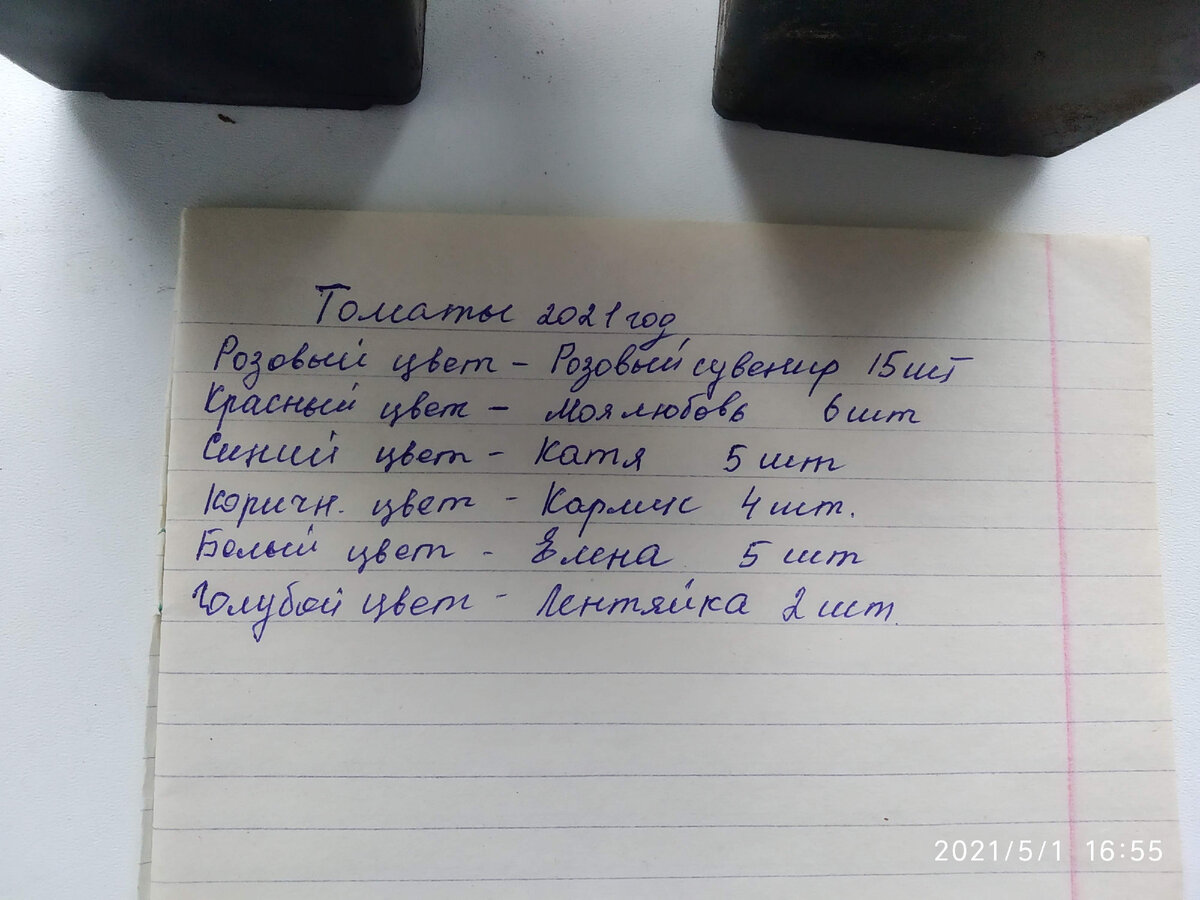 Томаты 2021 год
Розовый цвет - Розовый сувенир 15 шт
Красный цвет - Моя любовь 6 шт
Синий цвет - Катя 5 шт
Коричн. цвет - Кармис 4 шт.
Белый цвет - Елена 5 шт
Голубой цвет - Лентяйка 2 шт.
2021/5/1 16:55